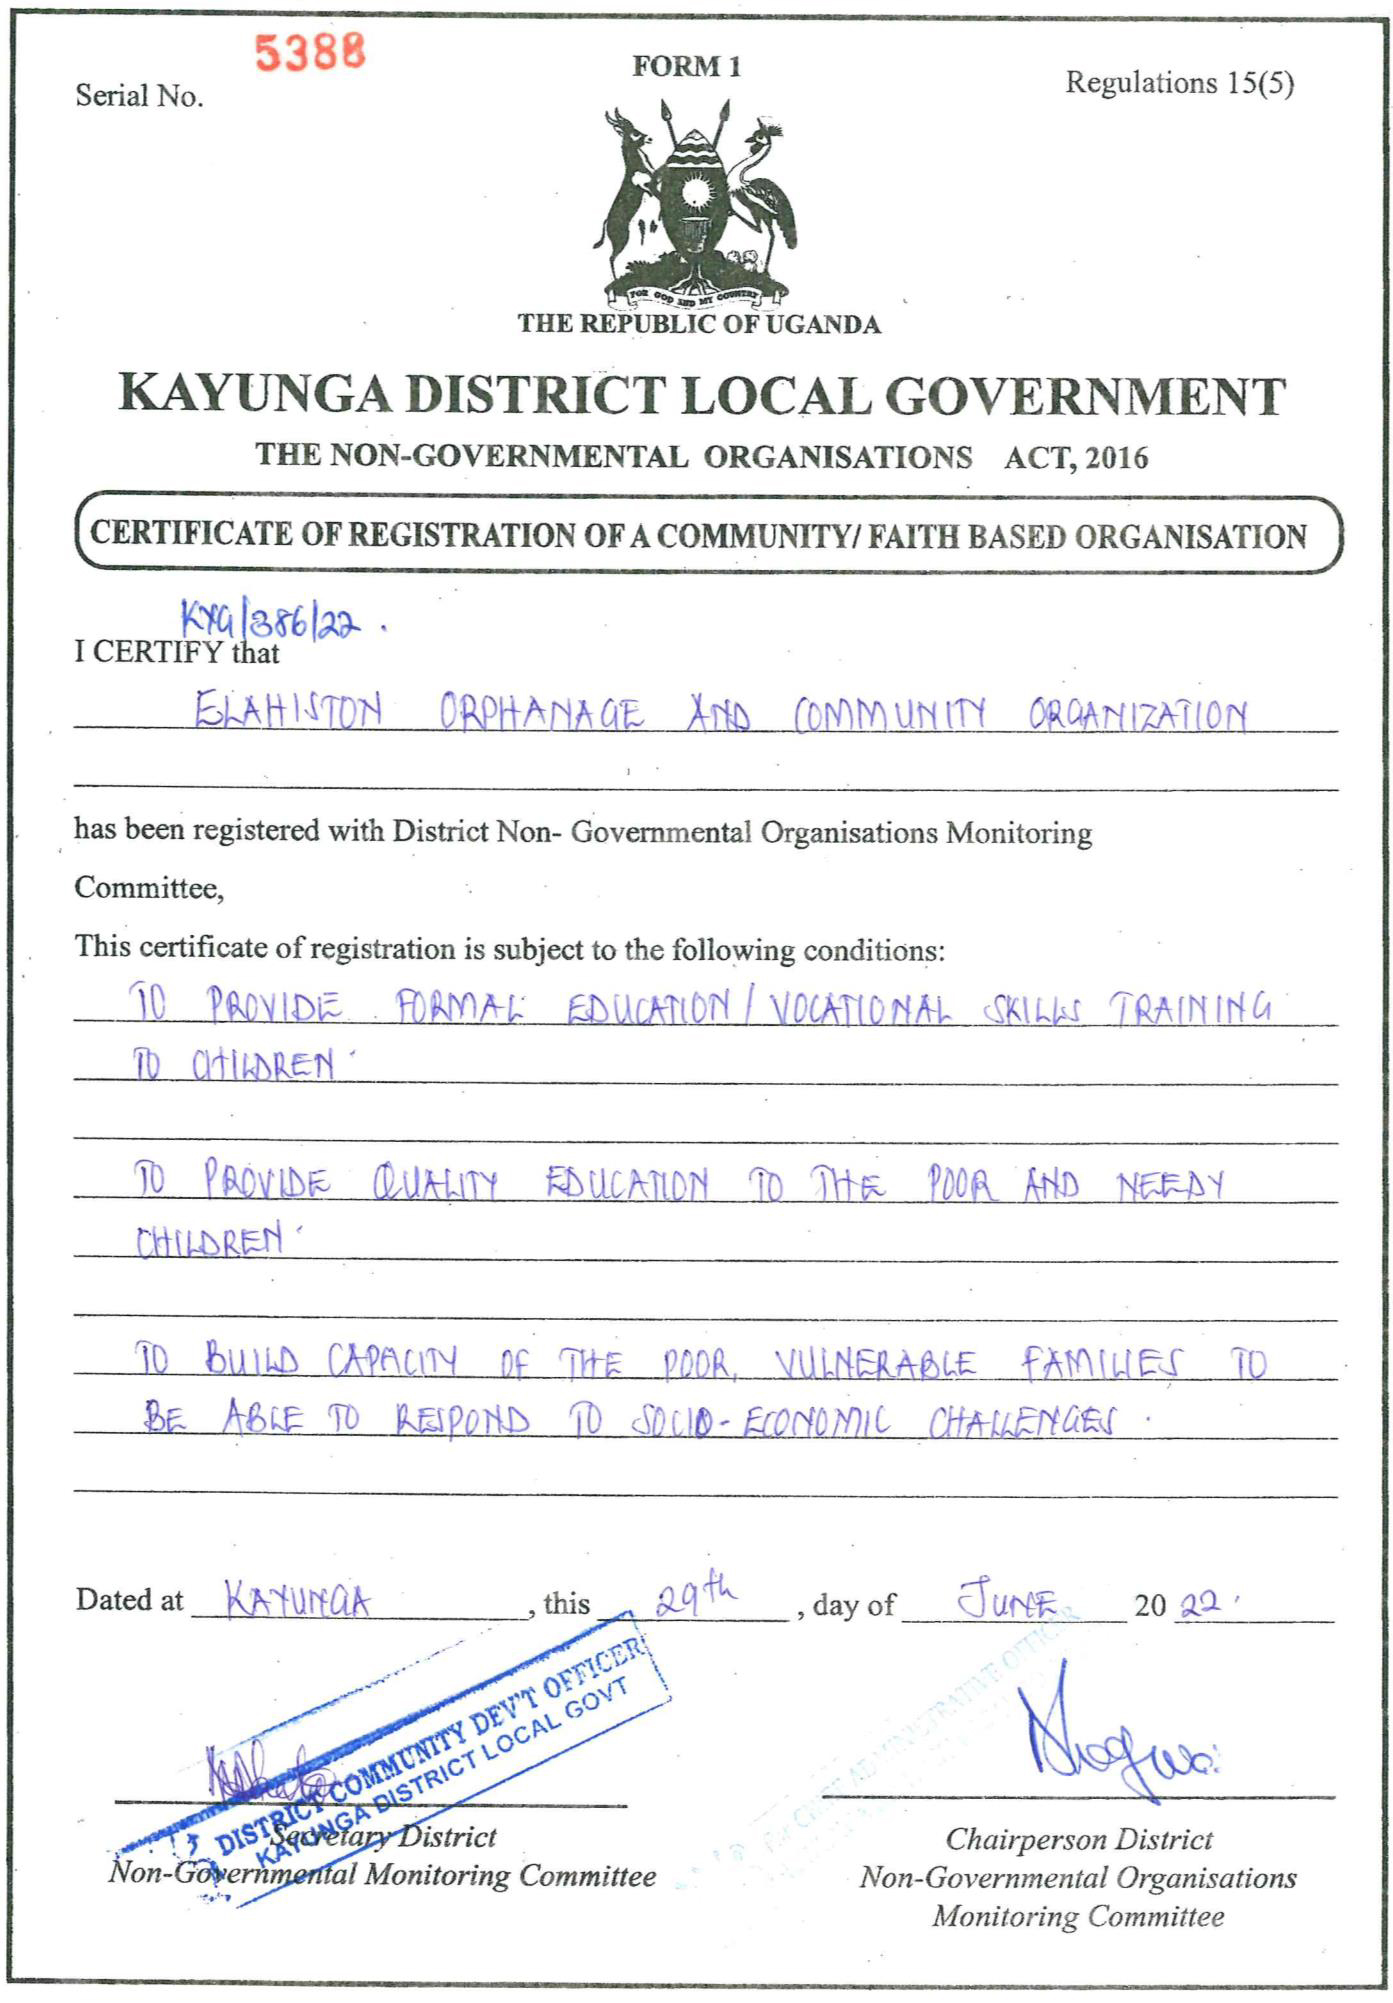 5388
Serial No.
FORM 1
Regulations 15(5)
FOR GOD AND MY COUNTRY
THE REPUBLIC OF UGANDA
KAYUNGA DISTRICT LOCAL GOVERNMENT
THE NON-GOVERNMENTAL ORGANISATIONS ACT, 2016
CERTIFICATE OF REGISTRATION OF A COMMUNITY/ FAITH BASED ORGANISATION
KYG/386/22.
I CERTIFY that
ELAHISTON ORPHANAGE AND COMMUNITY ORGANIZATION
has been registered with District Non- Governmental Organisations Monitoring
Committee,
This certificate of registration is subject to the following conditions:
TO PROVIDE FORMAL EDUCATION/VOCATIONAL SKILLS TRAINING
TO CHILDREN.
TO PROVIDE QUALITY EDUCATION TO THE POOR AND NEEDY
CHILDREN.
TO BUILD CAPACITY OF THE POOR, VULNERABLE FAMILIES TO
BE ABLE TO RESPOND TO SOCIO-ECONOMIC CHALLENGES.
Dated at KAYUNGA, this 29th, day of JUNE 2022.
DISTRICT COMMUNITY DEV'T OFFICER
KAYUNGA DISTRICT LOCAL GOVT
For CHIEF ADMINISTRATIVE OFFICER
Secretary District
Non-Governmental Monitoring Committee
Chairperson District
Non-Governmental Organisations
Monitoring Committee